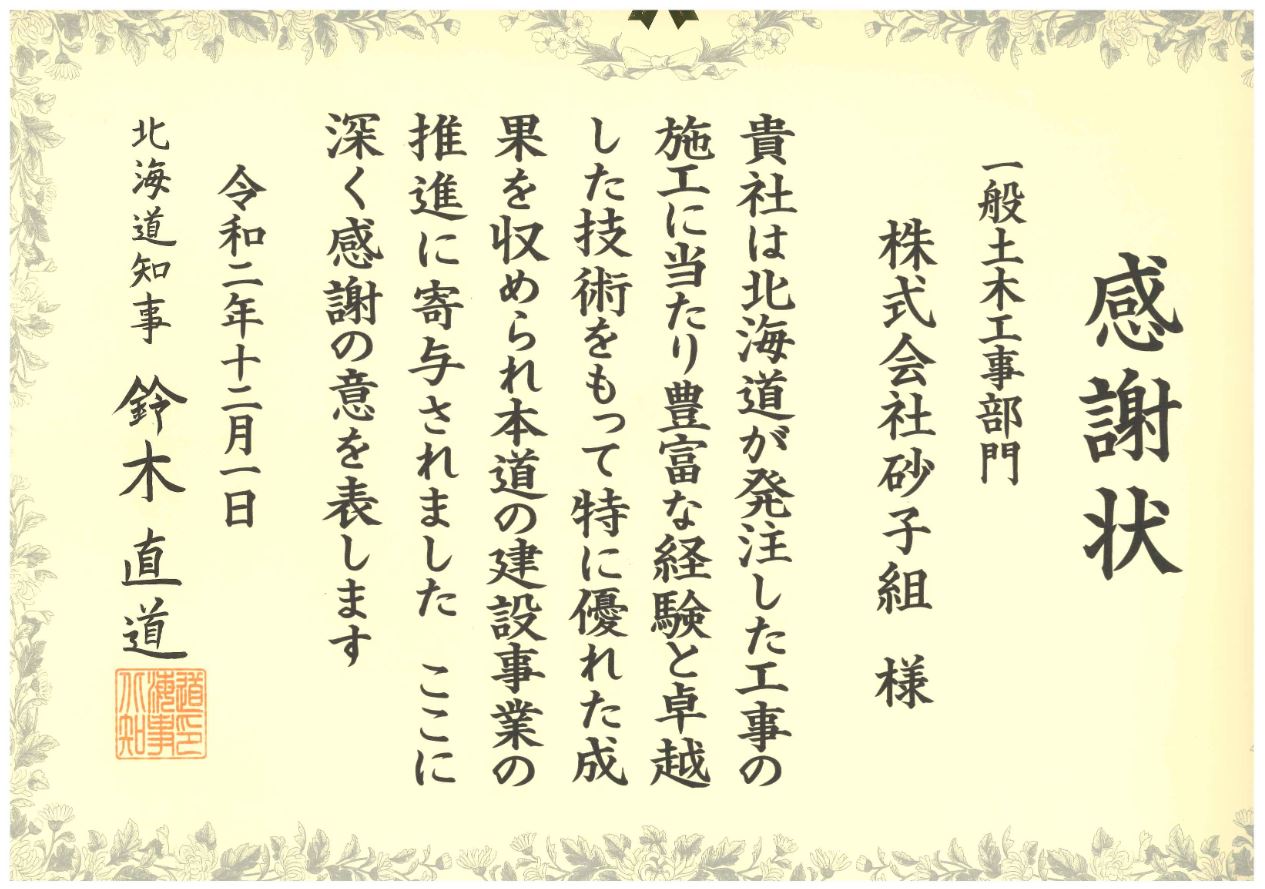 感謝状
一般土木工事部門
株式会社砂子組　様
貴社は北海道が発注した工事の
施工に当たり豊富な経験と卓越
した技術をもって特に優れた成
果を収められ本道の建設事業の
推進に寄与されました　ここに
深く感謝の意を表します
令和二年十二月一日
北海道知事　鈴木直道
道印
海事
北知